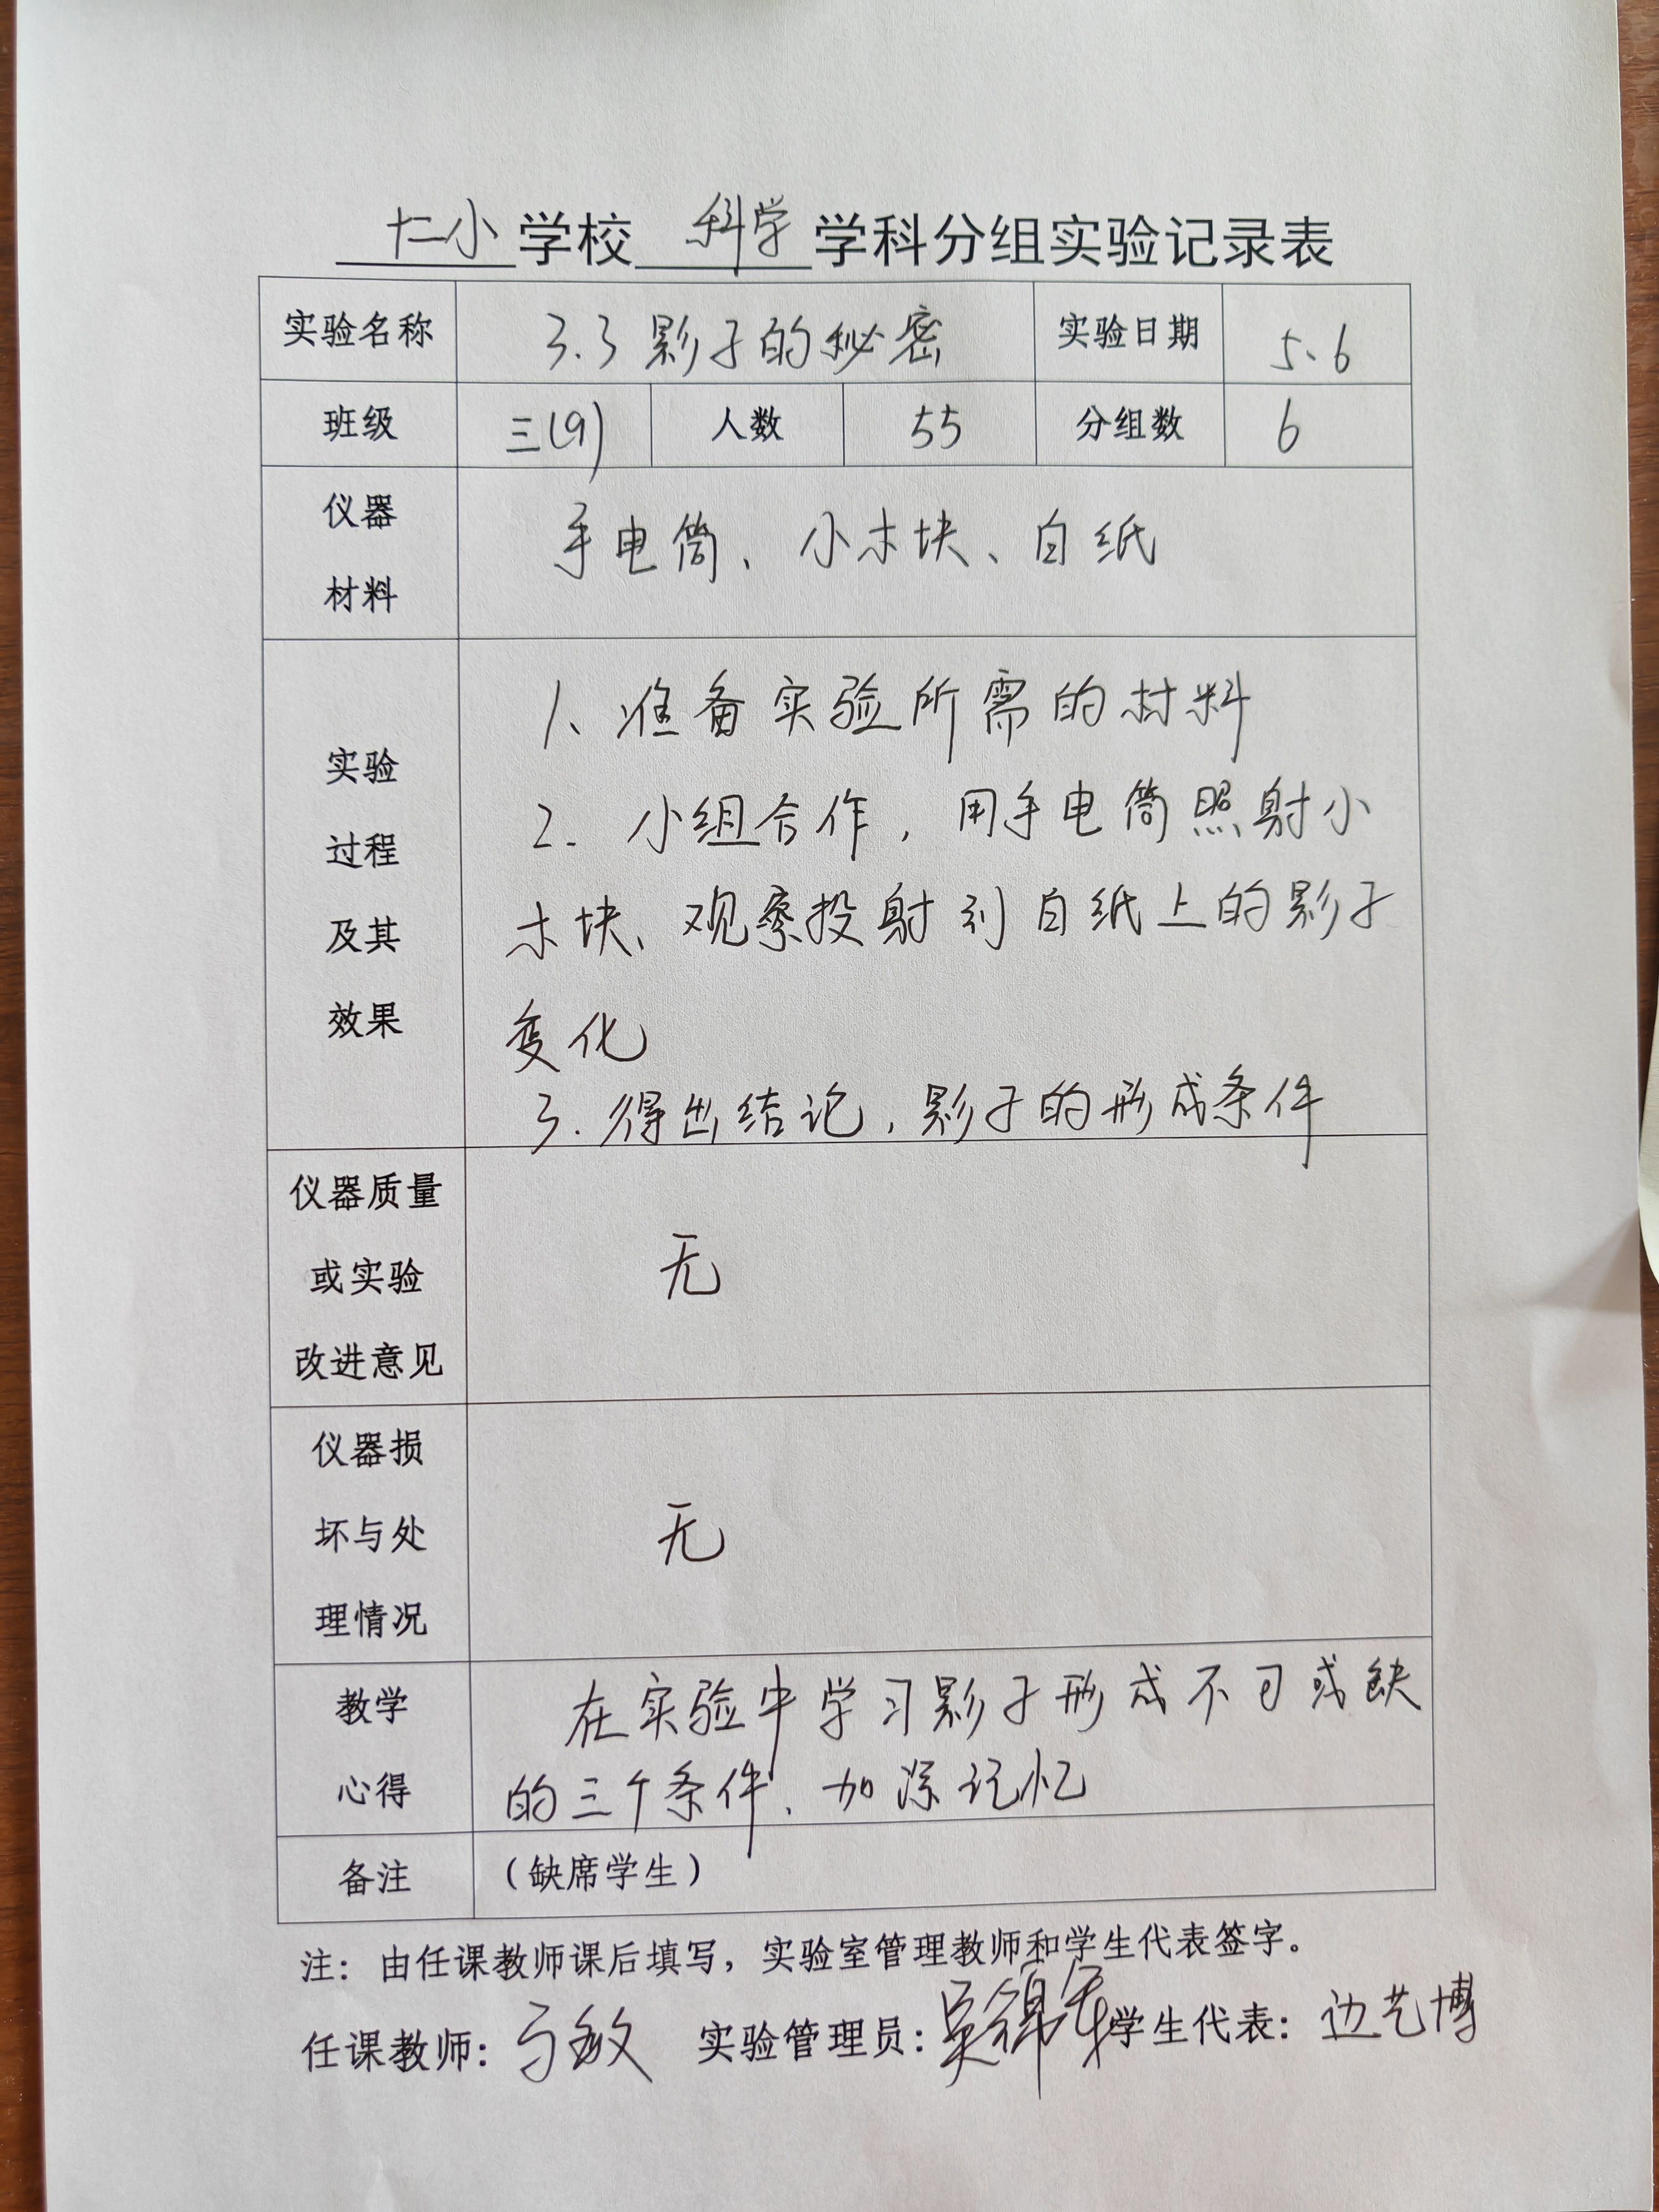 十二小学校科学学科分组实验记录表
实验名称 3.3影子的秘密 实验日期 5.6
班级 三(9) 人数 55 分组数 6
仪器
材料
手电筒、小木块、白纸
实验
过程
及其
效果
1、准备实验所需的材料
2. 小组合作，用手电筒照射小
木块、观察投射到白纸上的影子
变化
3. 得出结论，影子的形成条件
仪器质量
或实验
改进意见
无
仪器损
坏与处
理情况
无
教学
心得
在实验中学习影子形成不可或缺
的三个条件、加深记忆
备注 （缺席学生）
注：由任课教师课后填写，实验室管理教师和学生代表签字。
任课教师：马敏 实验管理员：吴锦 学生代表：边艺博